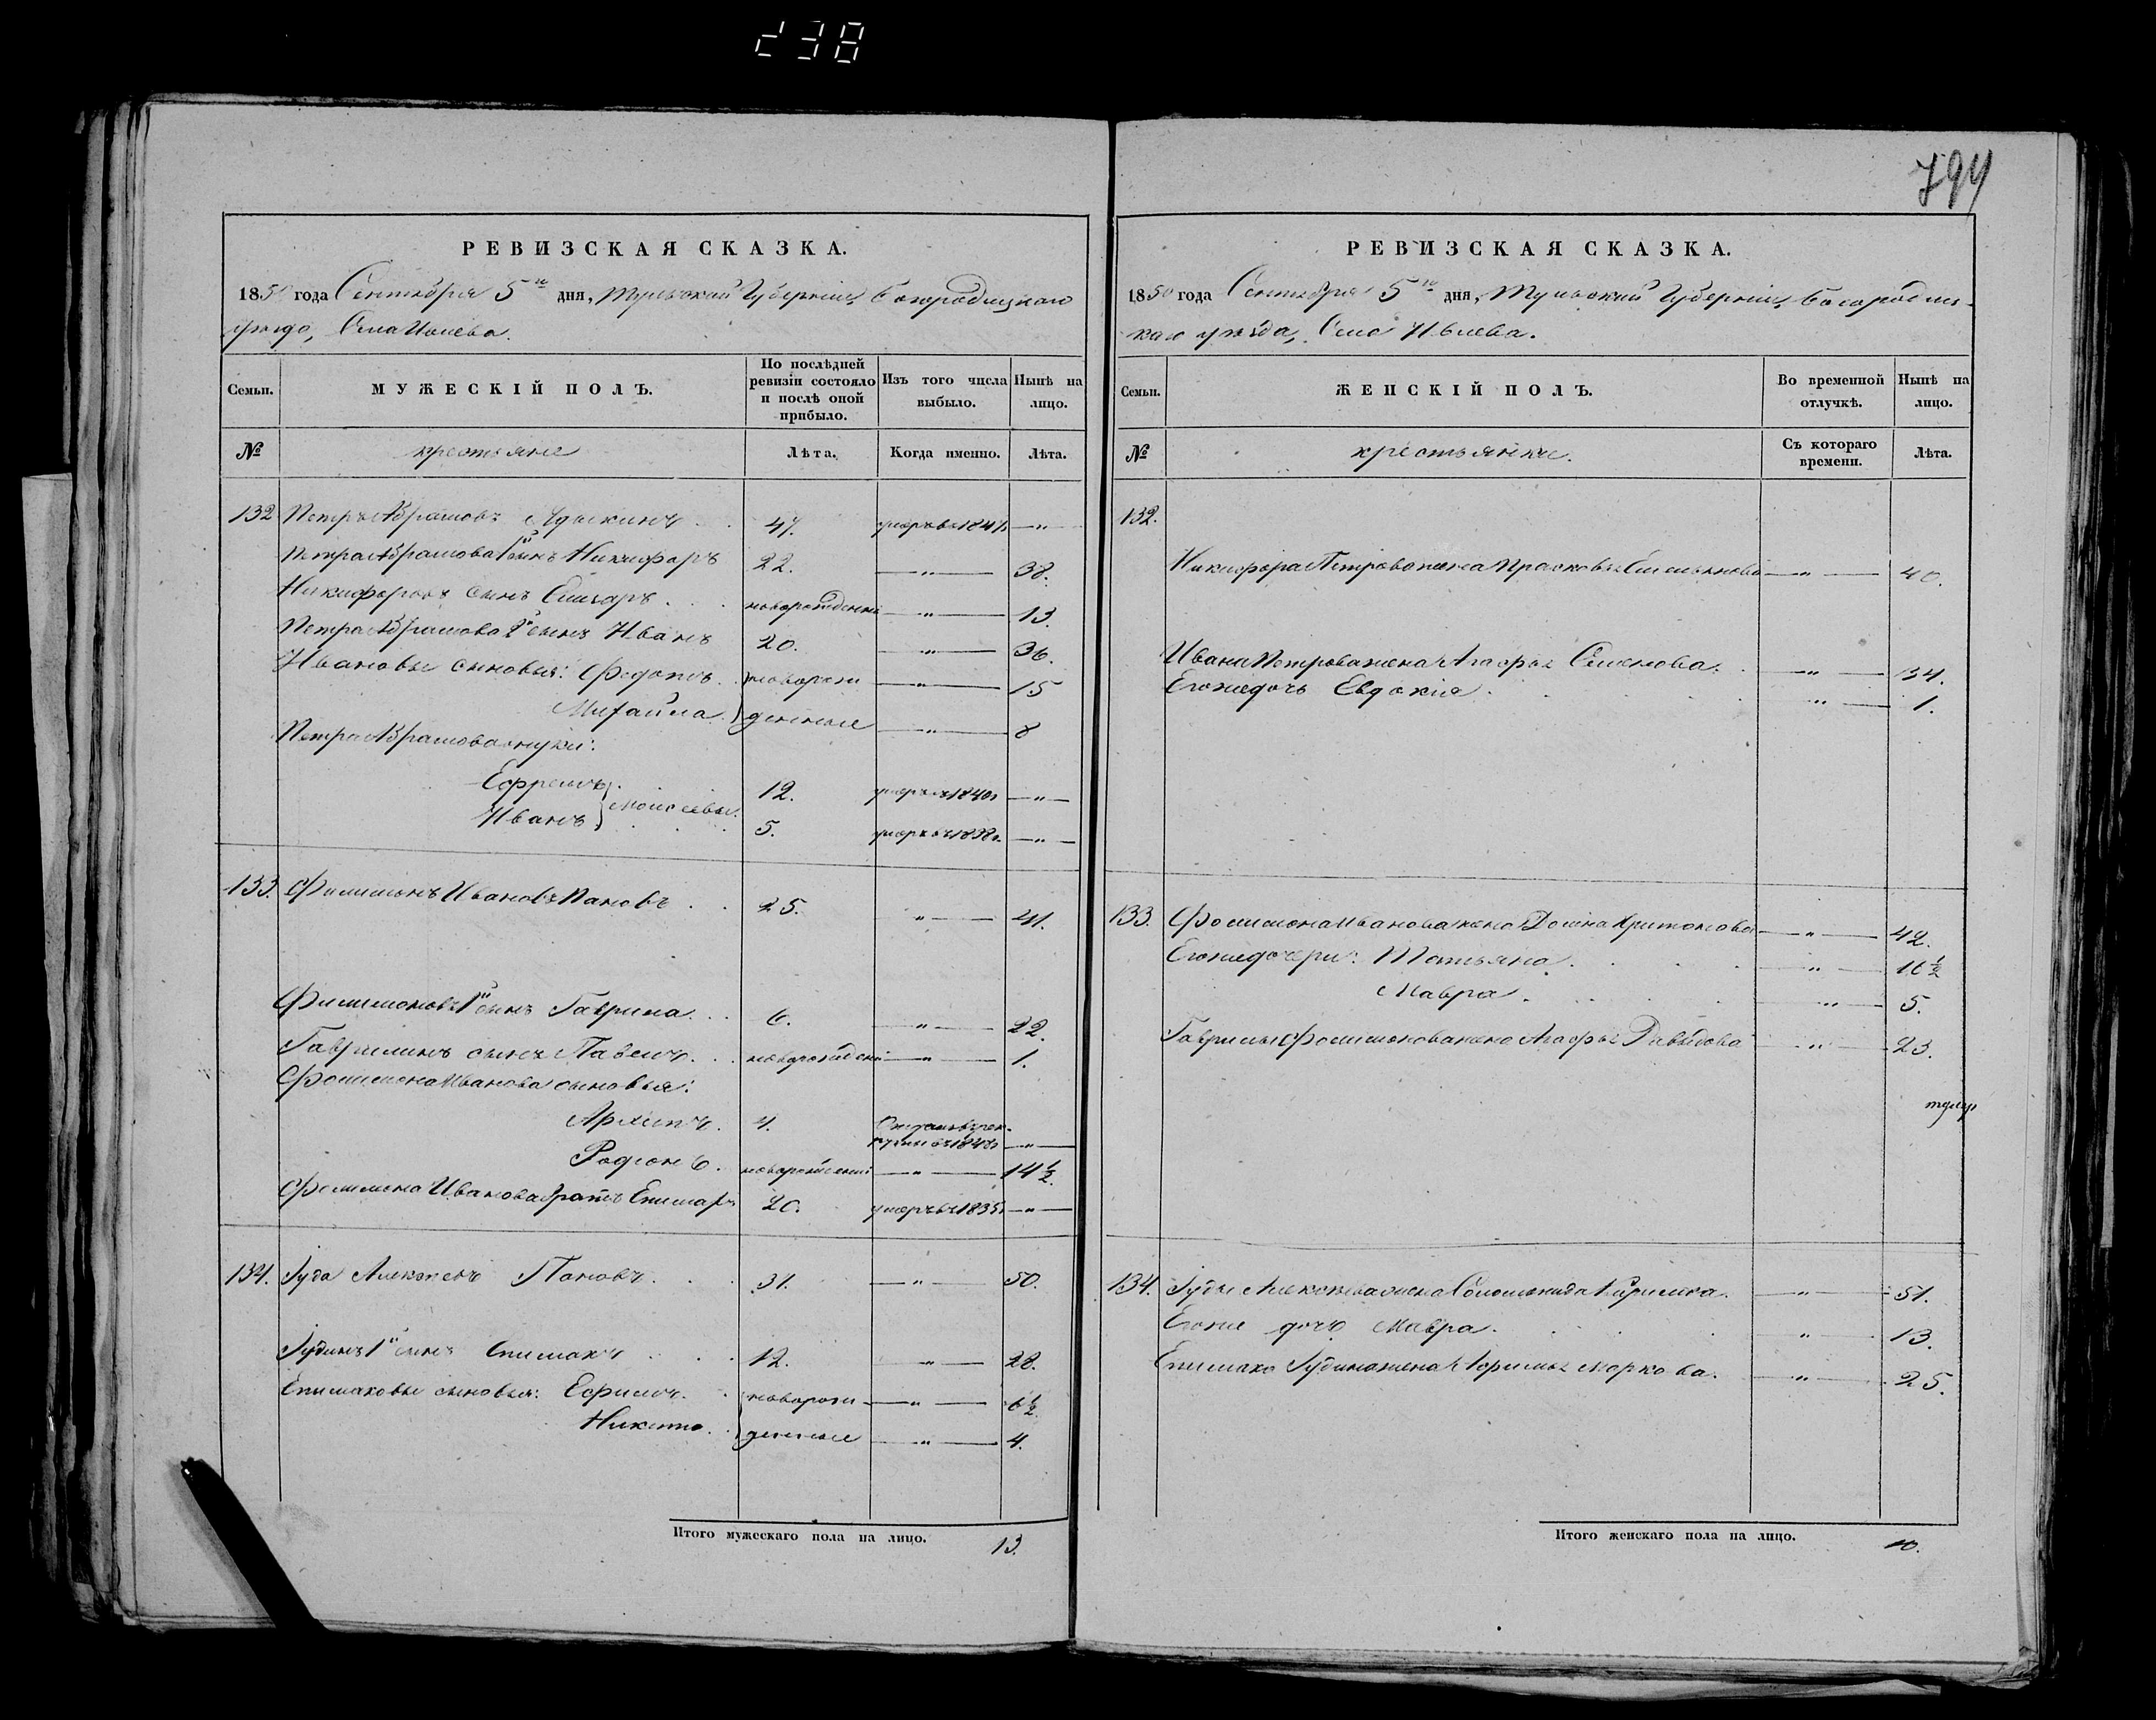 238
794
РЕВИЗСКАЯ СКАЗКА.
1850 года Сентября 5го дня, Тульской Губерніи, Богородицкаго
уѣзда, Села Ивлева.
Семьи.
МУЖЕСКІЙ ПОЛЪ.
По послѣдней ревизіи состояло и послѣ оной прибыло.
Изъ того числа выбыло.
Нынѣ на лицо.
№
крестьяне
Лѣта.
Когда именно.
Лѣта.
132 Петръ Абрамовъ 47. умеръ въ 1847 —"—
Петра Абрамова 1й сынъ Никифоръ 22. —"— 38.
Никифоровъ сынъ новорожденный —"— 13.
Петра Абрамова 2й сынъ Иванъ 20. —"— 36.
Ивановы сыновья: Федотъ. новорож —"— 15
Михайла. денные —"— 8
Петра Абрамова внуки:
Ефремъ 12. умеръ въ 1840г —"—
Иванъ Моисеевы. 5. умеръ въ 1838г. —"—
133. Филимонъ Ивановъ Пановъ 25. " — 41.
Филимоновъ 1й сынъ Гаврила 6. —"— 22.
Гаврилинъ сынъ Павелъ новорожден —"— 1.
Филимона Иванова сыновья:
Архипъ. 4. Отданъ въ рек-
руты въ 1848г —"—
Родіонъ. новорожденный —"— 14 ½.
Филимона Иванова братъ 20. умеръ въ 1835г —"—
134. Іуда Алексѣевъ Пановъ 34. —"— 50.
Іудинъ 1й сынъ Епимахъ 12. —"— 28.
Епимаховы сыновья: Ефимъ. новорож —"— 6 ½.
Никита. денные —"— 4.
Итого мужескаго пола на лицо. 13.
РЕВИЗСКАЯ СКАЗКА.
1850 года Сентября 5го дня, Тульской Губерніи, Богородиц-
каго уѣзда, Села Ивлева.
Семьи.
ЖЕНСКІЙ ПОЛЪ.
Во временной отлучкѣ.
Нынѣ на лицо.
№
крестьянки.
Съ котораго времени.
Лѣта.
132.
Никифора Петрова жена Прасковья Емельянова —"— 40.
Ивана Петрова жена Агафья Семенова. —"— 34.
Его же дочь Евдокія —"— 1.
133. Филимона Иванова жена Харитонова —"— 42.
Его же дочери: Татьяна. —"— 16 ½
Мавра. —"— 5.
Гаврилы Филимонова жена Агафья Давыдова —"— 23.
134. Іуды Алексѣева жена Соломонида —"— 51.
Его же дочь Мавра. " 13.
Епимаха Іудина жена Маркова. —"— 25.
Итого женскаго пола на лицо. 10.